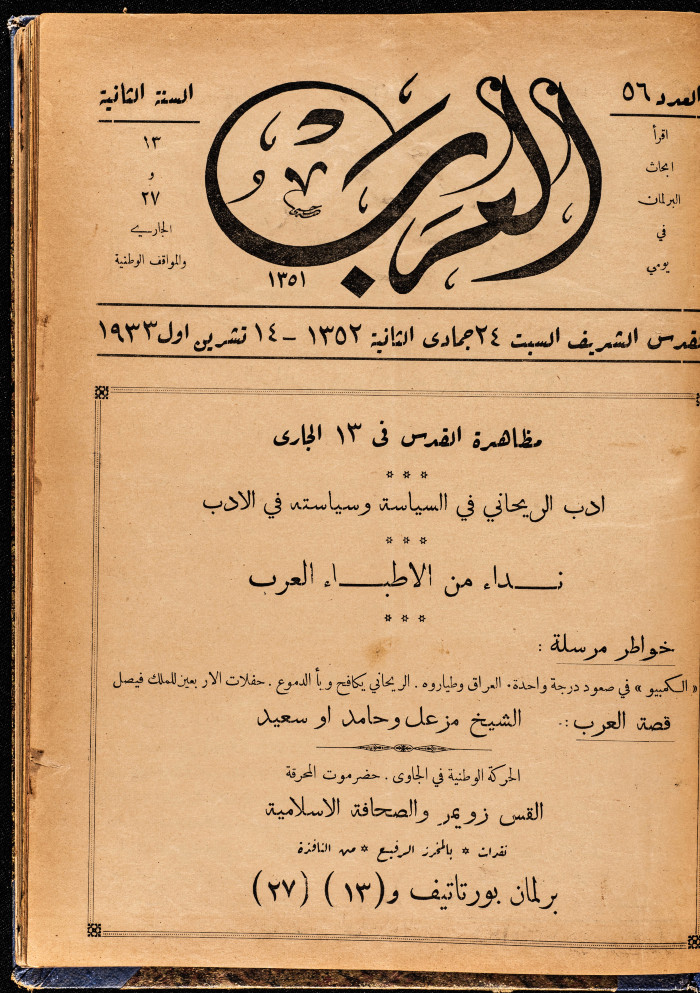 العدد ٥٦
السنة الثانية
العرب
١٣٥١
اقرأ
ابحاث
البرلمان
في
يومي
١٣
و
٢٧
الجاري
والمواقف الوطنية
قدس الشريف السبت ٢٤ جمادى الثانية ١٣٥٢ – ١٤ تشرين اول ١٩٣٣
مظاهرة القدس فى ١٣ الجارى
ادب الريحاني في السياسة وسياسته في الادب
نـــداء من الاطبـــاء العرب
خواطر مرسلة :
« الكمبيو » في صعود درجة واحدة . العراق وطياروه . الريحاني يكافح وبأ الدموع . حفلات الاربعين للملك فيصل
قصة العرب :. الشيخ مزعل وحامد او سعيد
الحركة الوطنية في الجاوى . حضرموت المحرقة
القس زويمر والصحافة الاسلامية
نقرات * بالمخرز الرفيع * من النافذة
برلمان بورتاتيف و(١٣) (٢٧)